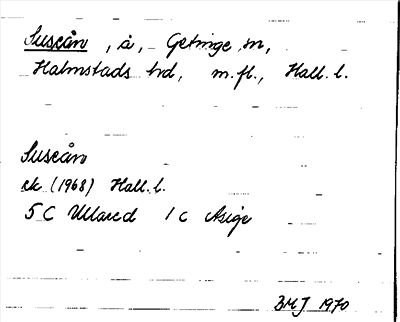 Suseån, å, Getinge sn,
Halmstads hd, m.fl., Hall. l.
Suseån
ek (1968) Hall. l.
5 C Ullared 1 c Asige
BMJ 1970